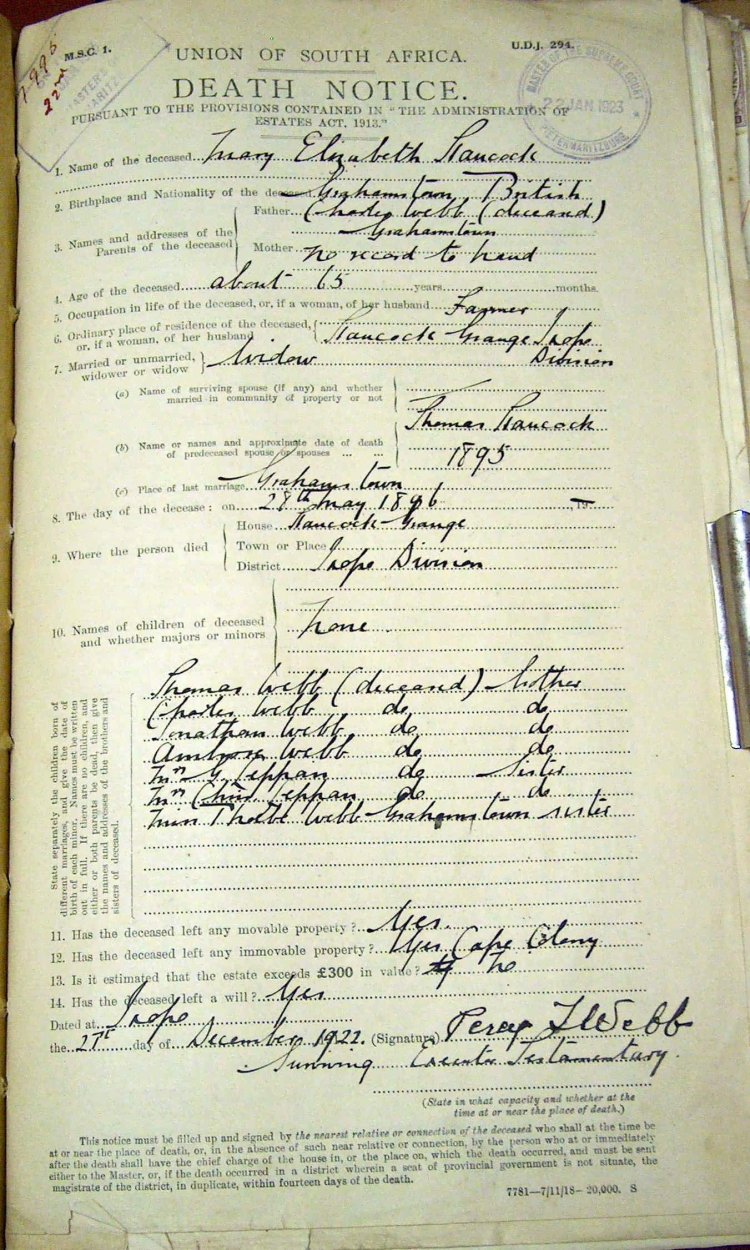 M.S.C. 1.
U.D.J. 294.
22nd
MASTER OF THE SUPREME COURT
22 JAN 1923
PIETERMARITZBURG
UNION OF SOUTH AFRICA.
DEATH NOTICE.
PURSUANT TO THE PROVISIONS CONTAINED IN "THE ADMINISTRATION OF
ESTATES ACT, 1913."
1. Name of the deceased Mary Elizabeth Hancock
2. Birthplace and Nationality of the deceased Grahamstown British
3. Names and addresses of the Parents of the deceased
Father Charles Webb (deceased)
Grahamstown
Mother no record to hand
4. Age of the deceased about 65 years months.
5. Occupation in life of the deceased, or, if a woman, of her husband Farmer
6. Ordinary place of residence of the deceased, or, if a woman, of her husband Hancock Grange Ixopo
Division
7. Married or unmarried, widower or widow Widow
(a) Name of surviving spouse (if any) and whether married in community of property or not
(b) Name or names and approximate date of death of predeceased spouse or spouses
Thomas Hancock
1895
(c) Place of last marriage Grahamstown
8. The day of the decease: on 28th May 1896, 19
9. Where the person died
House Hancock Grange
Town or Place
District Ixopo Division
10. Names of children of deceased and whether majors or minors
None
State separately the children born of
different marriages, and give the date of
birth of each minor. Names must be written
out in full. If there are no children, and
either or both parents be dead, then give
the names and addresses of the brothers and
sisters of deceased.
Thomas Webb (deceased) brother
Charles Webb do do
Jonathan Webb do do
Ambrose Webb do do
Mrs G Jeppan do sister
Mrs Chas Jeppan do do
Miss Phoebe Webb Grahamstown sister
11. Has the deceased left any movable property? Yes.
12. Has the deceased left any immovable property? Yes Cape Colony
13. Is it estimated that the estate exceeds £300 in value? No
14. Has the deceased left a will? Yes
Dated at Ixopo
the 27th day of December 1922. (Signature) Percy F Webb
Surviving Executor Testamentary.
(State in what capacity and whether at the
time at or near the place of death.)
This notice must be filled up and signed by the nearest relative or connection of the deceased who shall at the time be
at or near the place of death, or, in the absence of such near relative or connection, by the person who at or immediately
after the death shall have the chief charge of the house in, or the place on, which the death occurred, and must be sent
either to the Master, or, if the death occurred in a district wherein a seat of provincial government is not situate, the
magistrate of the district, in duplicate, within fourteen days of the death.
7781—7/11/18—20,000. S